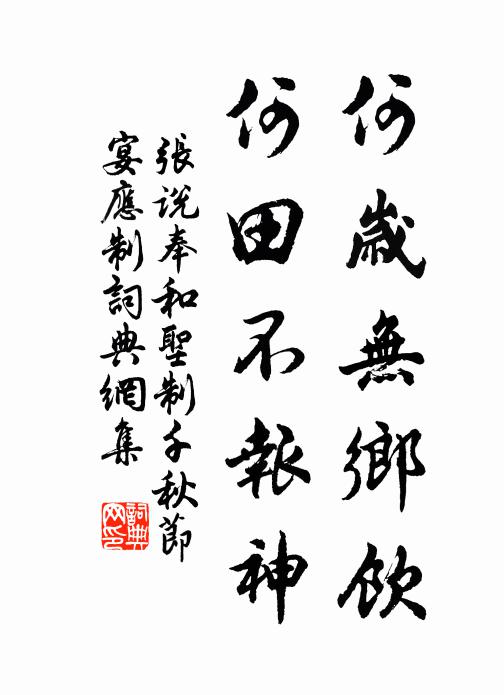 何歲無鄉飲
何田不報神
張說奉和聖制千秋節
宴應制詞典網集
詞典
网印